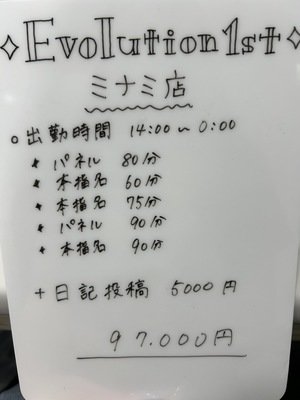 ✧Evolution1st✧
ミナミ店
○出勤時間 14:00～0:00
★ パネル 80分
★ 本指名 60分
★ 本指名 75分
★ パネル 90分
★ 本指名 90分
+日記投稿 5000円
97.000円